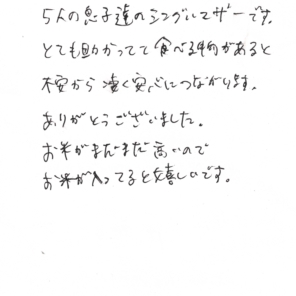 5人の息子達のシングルマザーです。
とても助かってて食べる物があると
不安から凄く安心につながります。
ありがとうございました。
お米がまだまだ高いので
お米が入ってると嬉しいです。